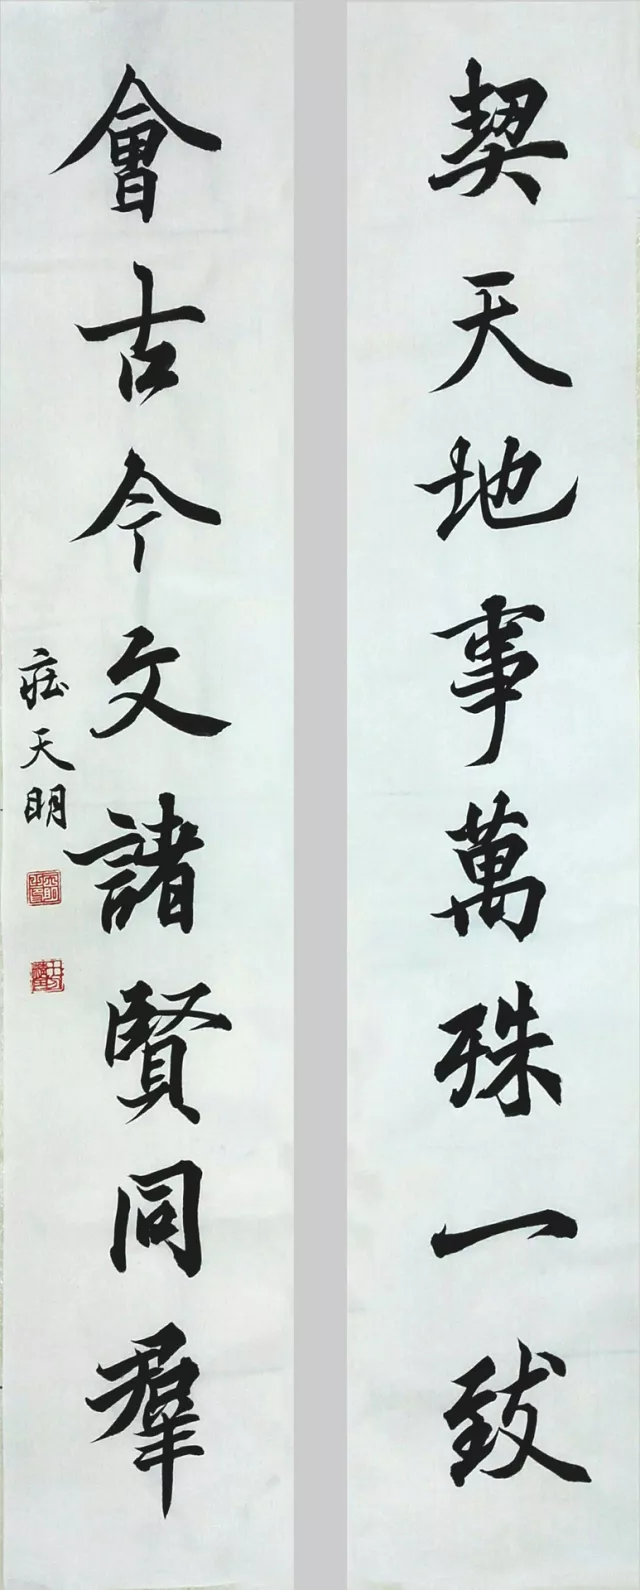 契天地事萬殊一致
會古今文諸賢同羣
莊天明